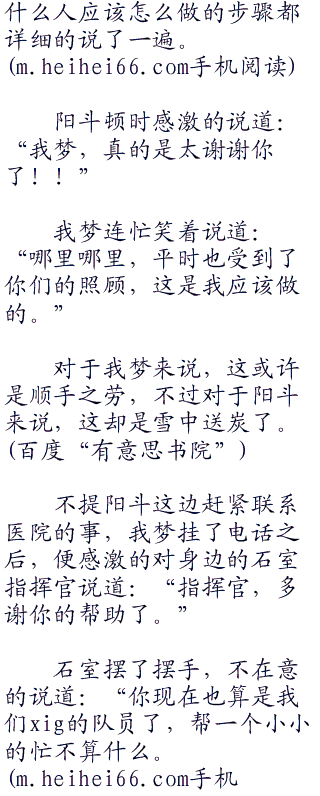 什么人应该怎么做的步骤都
详细的说了一遍。
(m.heihei66.com手机阅读)
阳斗顿时感激的说道：
“我梦，真的是太谢谢你
了！！”
我梦连忙笑着说道：
“哪里哪里，平时也受到了
你们的照顾，这是我应该做
的。”
对于我梦来说，这或许
是顺手之劳，不过对于阳斗
来说，这却是雪中送炭了。
(百度“有意思书院”)
不提阳斗这边赶紧联系
医院的事，我梦挂了电话之
后，便感激的对身边的石室
指挥官说道：“指挥官，多
谢你的帮助了。”
石室摆了摆手，不在意
的说道：“你现在也算是我
们xig的队员了，帮一个小小
的忙不算什么。
(m.heihei66.com手机